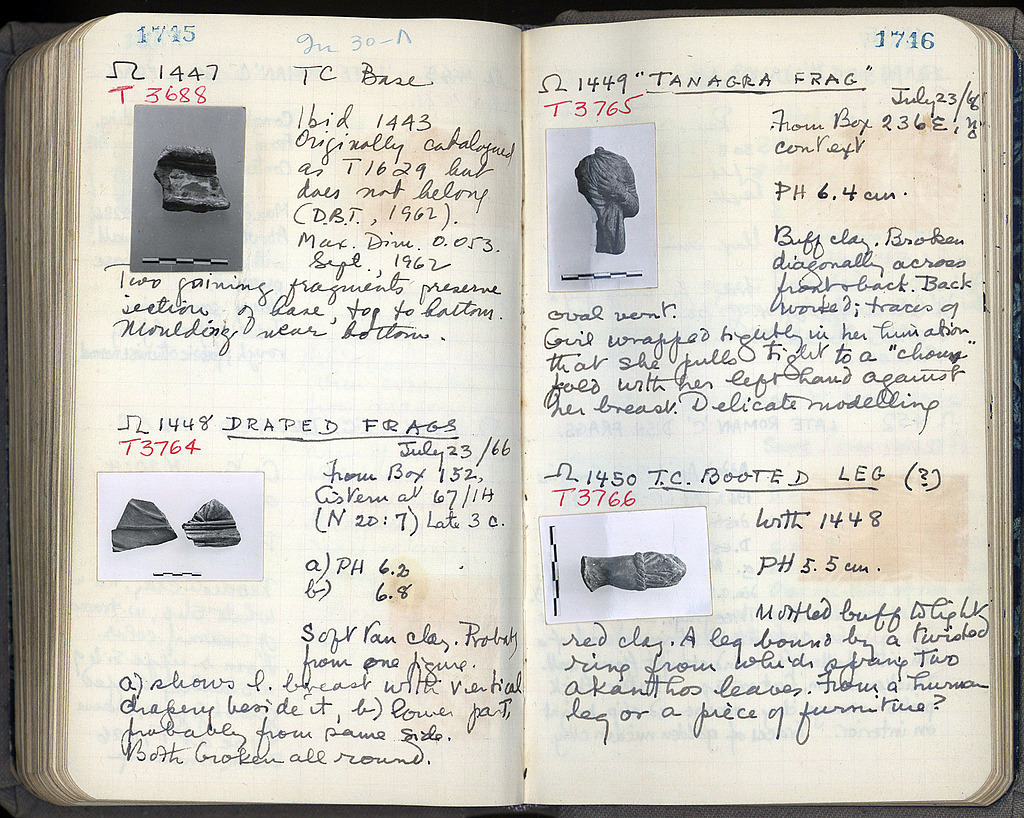 1745
Ω 1447 TC Base
T 3688
Ibid 1443
Originally catalogued
as T 1629 but
does not belong
(D.B.T., 1962).
Max. Dim. 0.053.
Sept., 1962
Two joining fragments preserve
section of base, top to bottom.
Moulding near bottom.
Ω 1448 DRAPED FRAGS
T 3764
July 23/66
From Box 152,
Cistern at 67/ΙΗ
(N 20:7) Late 3 c.
a) PH 6.2
b) 6.8
Soft tan clay. Probably
from one figure.
a) shows l. breast with vertical
drapery beside it, b) lower part,
probably from same side.
Both broken all round.
1746
Ω 1449 "TANAGRA FRAG"
T 3765
July 23/
From Box 236 E,
context
PH 6.4 cm.
Buff clay. Broken
diagonally across
front & back. Back
worked; traces of
oval vent.
Girl wrapped tightly in her himation
that she pulls tight to a
fold with her left hand against
her breast. Delicate modelling
Ω 1450 T.C. BOOTED LEG (?)
T 3766
With 1448
PH 5.5 cm.
Mottled buff to light
red clay. A leg bound by a twisted
ring from which spring two
akanthos leaves. From a human
leg or a piece of furniture?